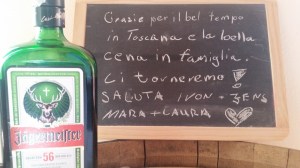 Grazie per il bel tempo
in Toscana e la bella
cena in famiglia.
Ci torneremo!
SALUTA IVON - JENS
MARA + LAURA
Jägermeister
56